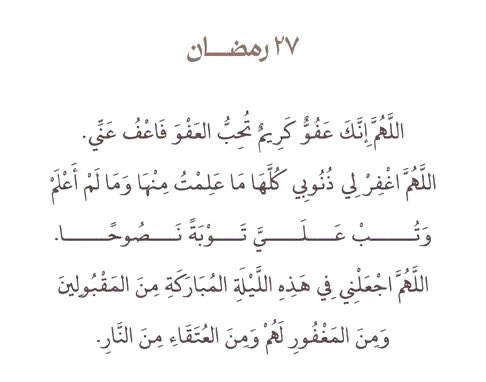 ٢٧ رمضـــان
اللَّهُمَّ إِنَّكَ عَفُوٌّ كَرِيمٌ تُحِبُّ العَفْوَ فَاعْفُ عَنِّي.
اللَّهُمَّ اغْفِرْ لِي ذُنُوبِي كُلَّهَا مَا عَلِمْتُ مِنْهَا وَمَا لَمْ أَعْلَمْ
وَتُـــــبْ عَـــلَـــــيَّ تَـــوْبَةً نَـــصُوحًـــــا.
اللَّهُمَّ اجْعَلْنِي فِي هَذِهِ اللَّيْلَةِ المُبَارَكَةِ مِنَ المَقْبُولِينَ
وَمِنَ المَغْفُورِ لَهُمْ وَمِنَ العُتَقَاءِ مِنَ النَّارِ.